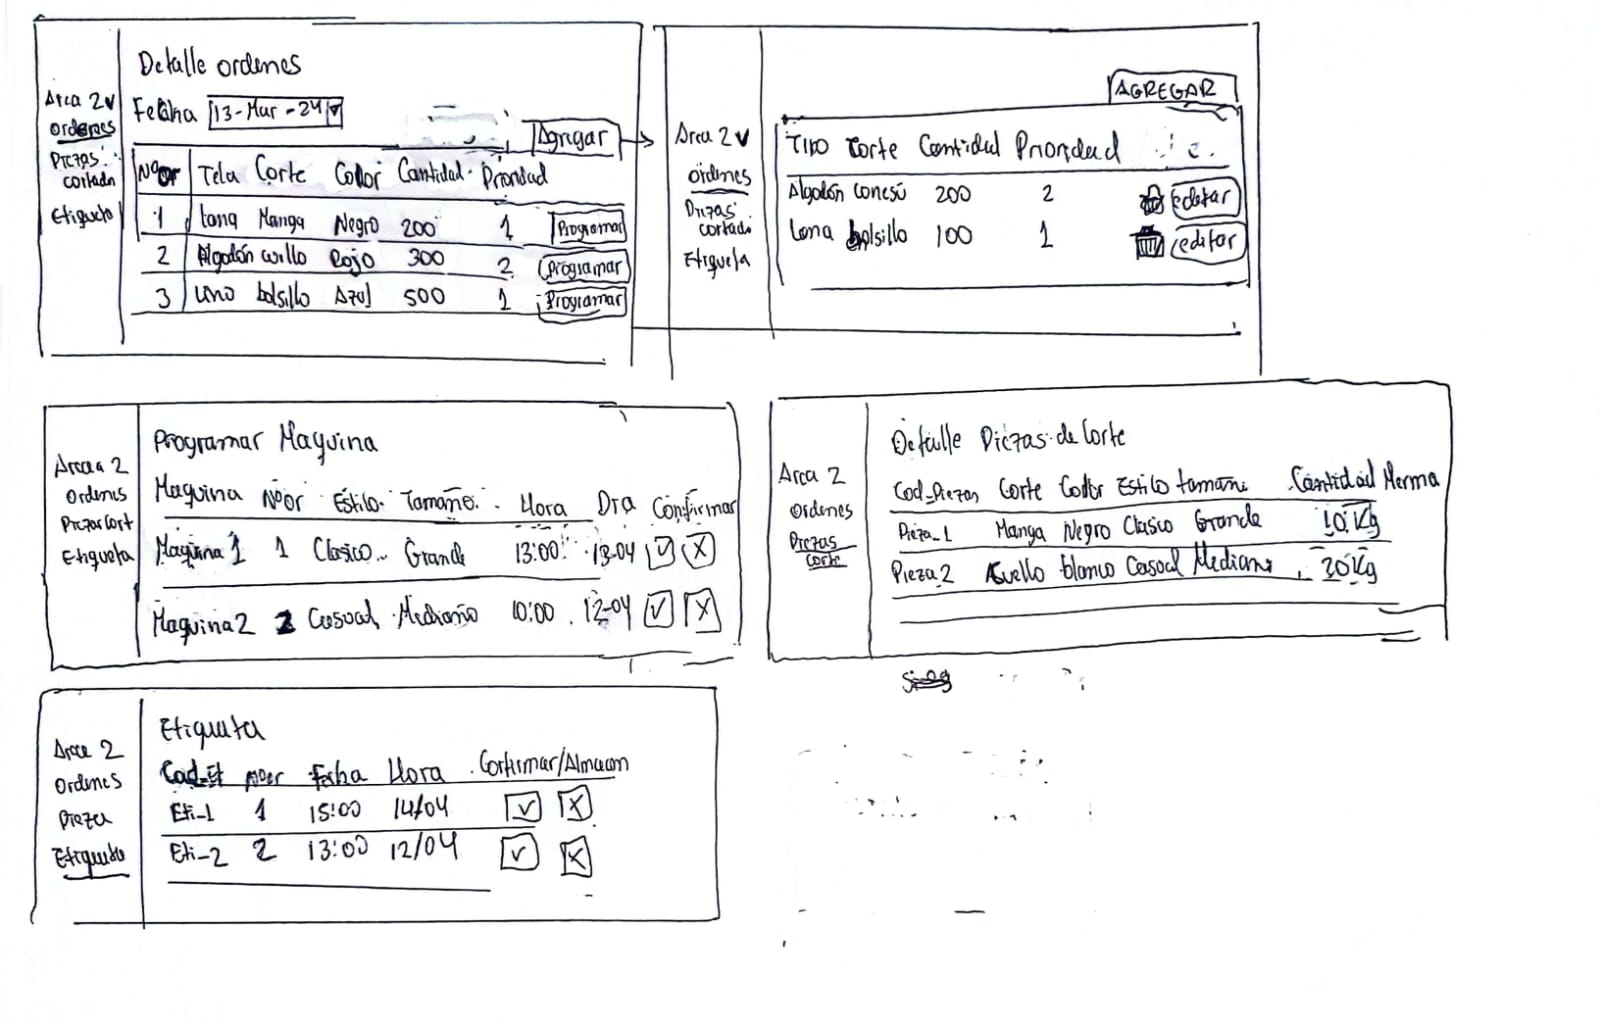 Detalle ordenes
Area 2 v
ordenes
Piezas
cortada
Etiqueta
Fecha 13-Mar-24
Agregar
NºOr Tela Corte Color Cantidad Prioridad
1 Lana Manga Negro 200 1 Programar
2 Algodón cuello Rojo 300 2 Programar
3 Lino bolsillo Azul 500 1 Programar
AGREGAR
Area 2 v
ordenes
Piezas
cortada
Etiqueta
Tipo Corte Cantidad Prioridad
Algodón 200 2 editar
Lona bolsillo 100 1 editar
Programar Maquina
Area 2
Ordenes
Piezas Cort
Etiqueta
Maquina NºOr Estilo Tamaño Hora Dia Confirmar
Maquina 1 1 Clasico Grande 13:00 13-04
Maquina 2 2 Casual Mediano 10:00 12-04
Detalle Piezas de Corte
Area 2
Ordenes
Piezas
Corte
Cod_Piezas Corte Color Estilo tamaño Cantidad Merma
Pieza_1 Manga Negro Clasico Grande 10 Kg
Pieza 2 Cuello blanco Casual Mediano 30 Kg
Etiqueta
Area 2
Ordenes
Pieza
Etiqueta
Cod_Et Nºor fecha Hora Confirmar/Almacen
Eti-1 1 15:00 14/04
Eti-2 2 13:00 12/04